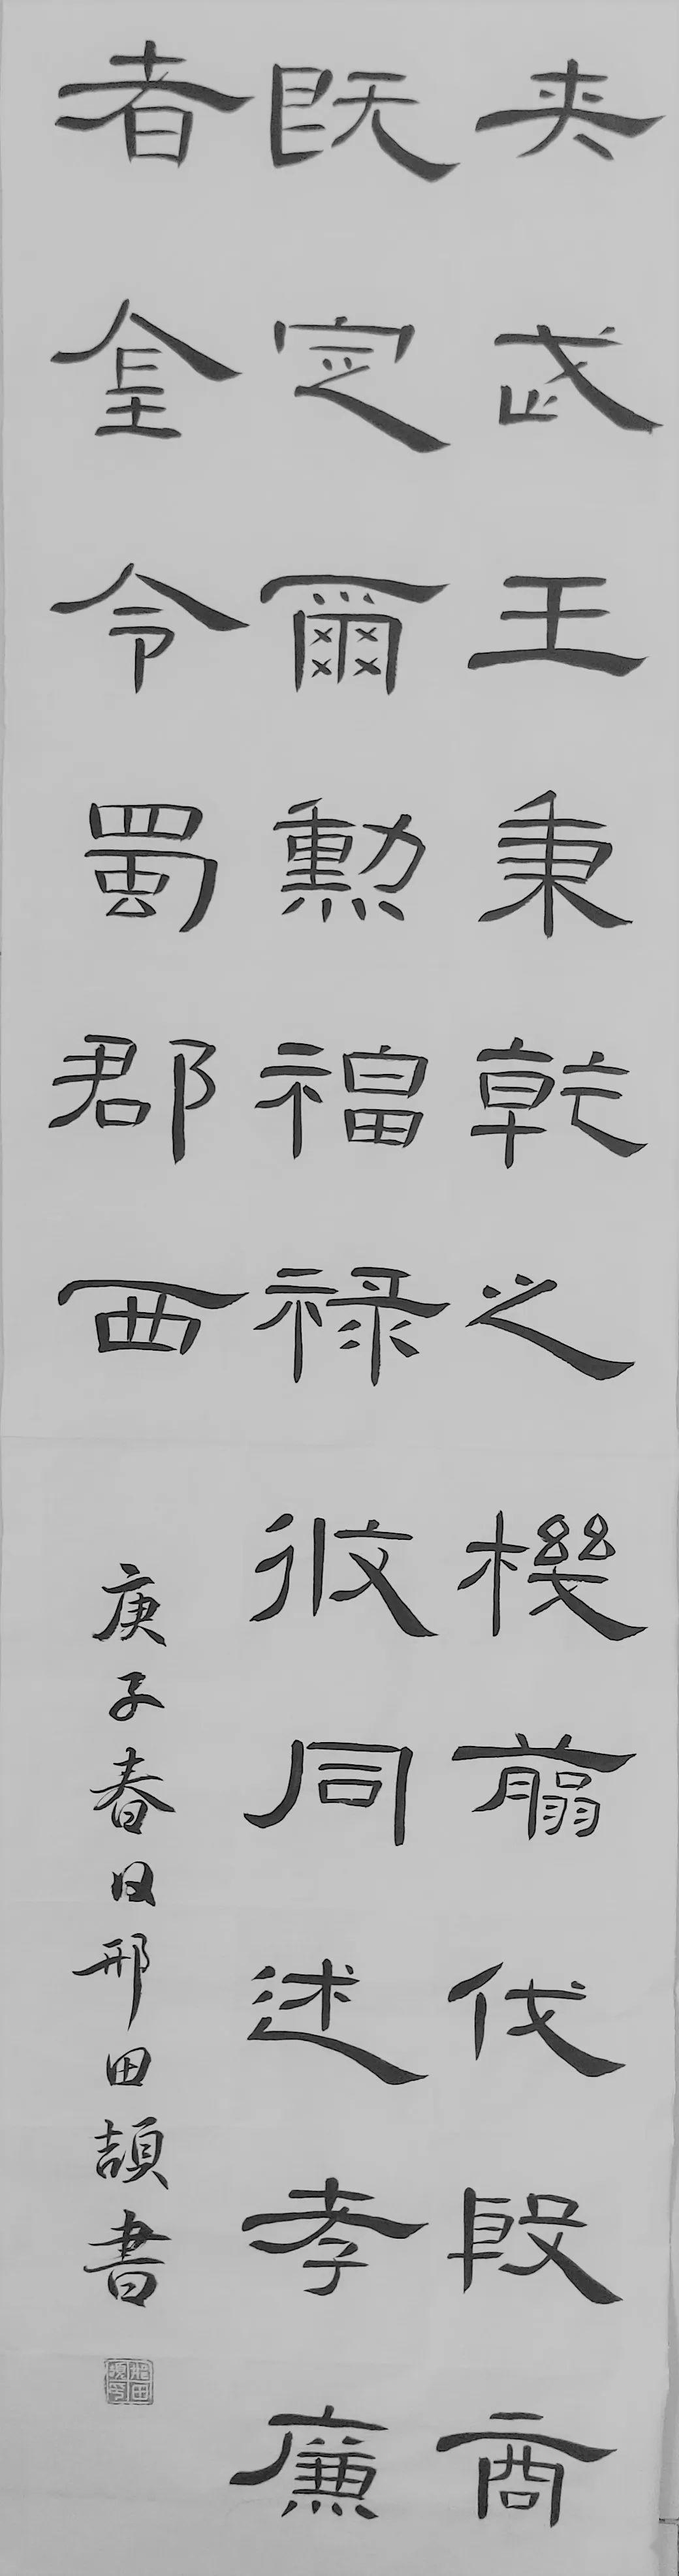 夹武王秉乾之機翦伐殷商
既定爾勳福禄攸同述孝廉
者金令蜀郡西
庚子春日邢田頡書